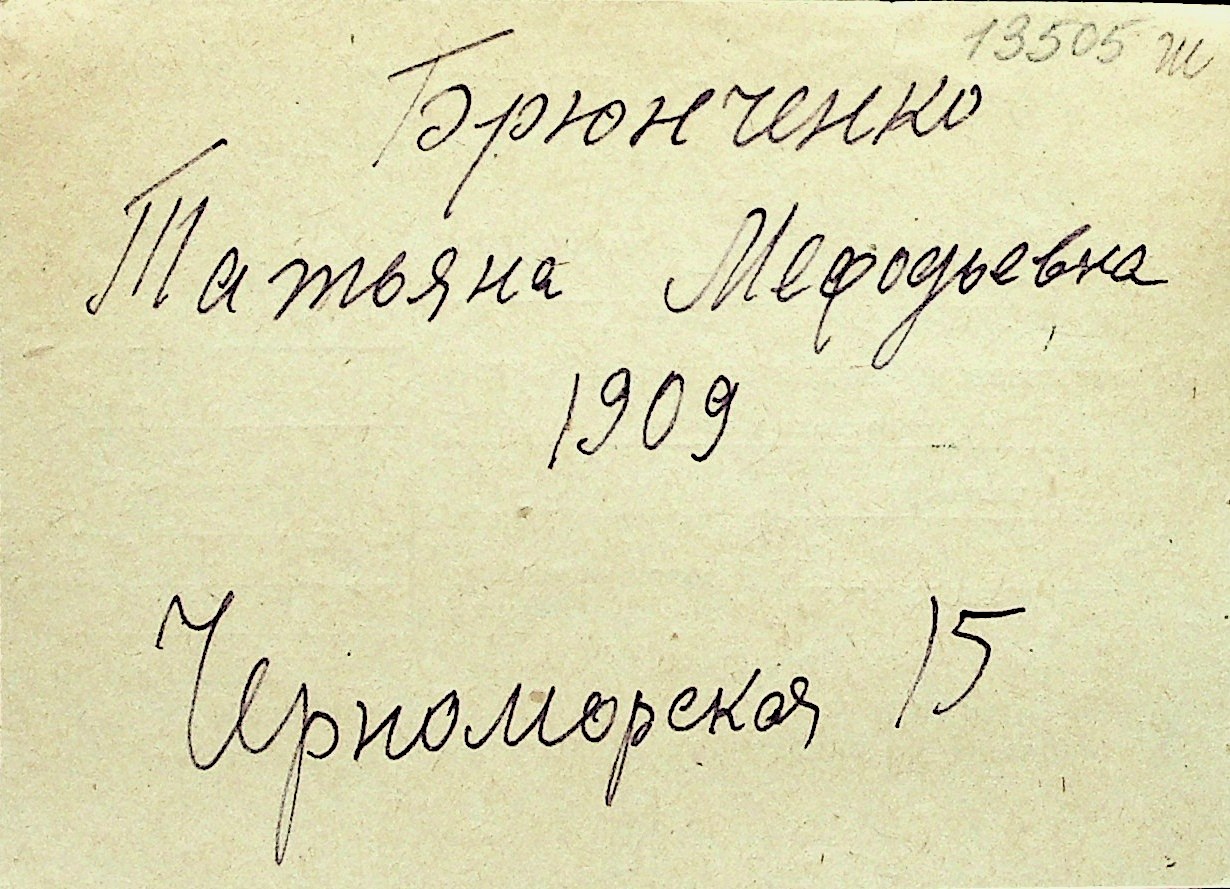 13505 ш
Брюнченко
Татьяна Мефодьевна
1909
Черноморская 15